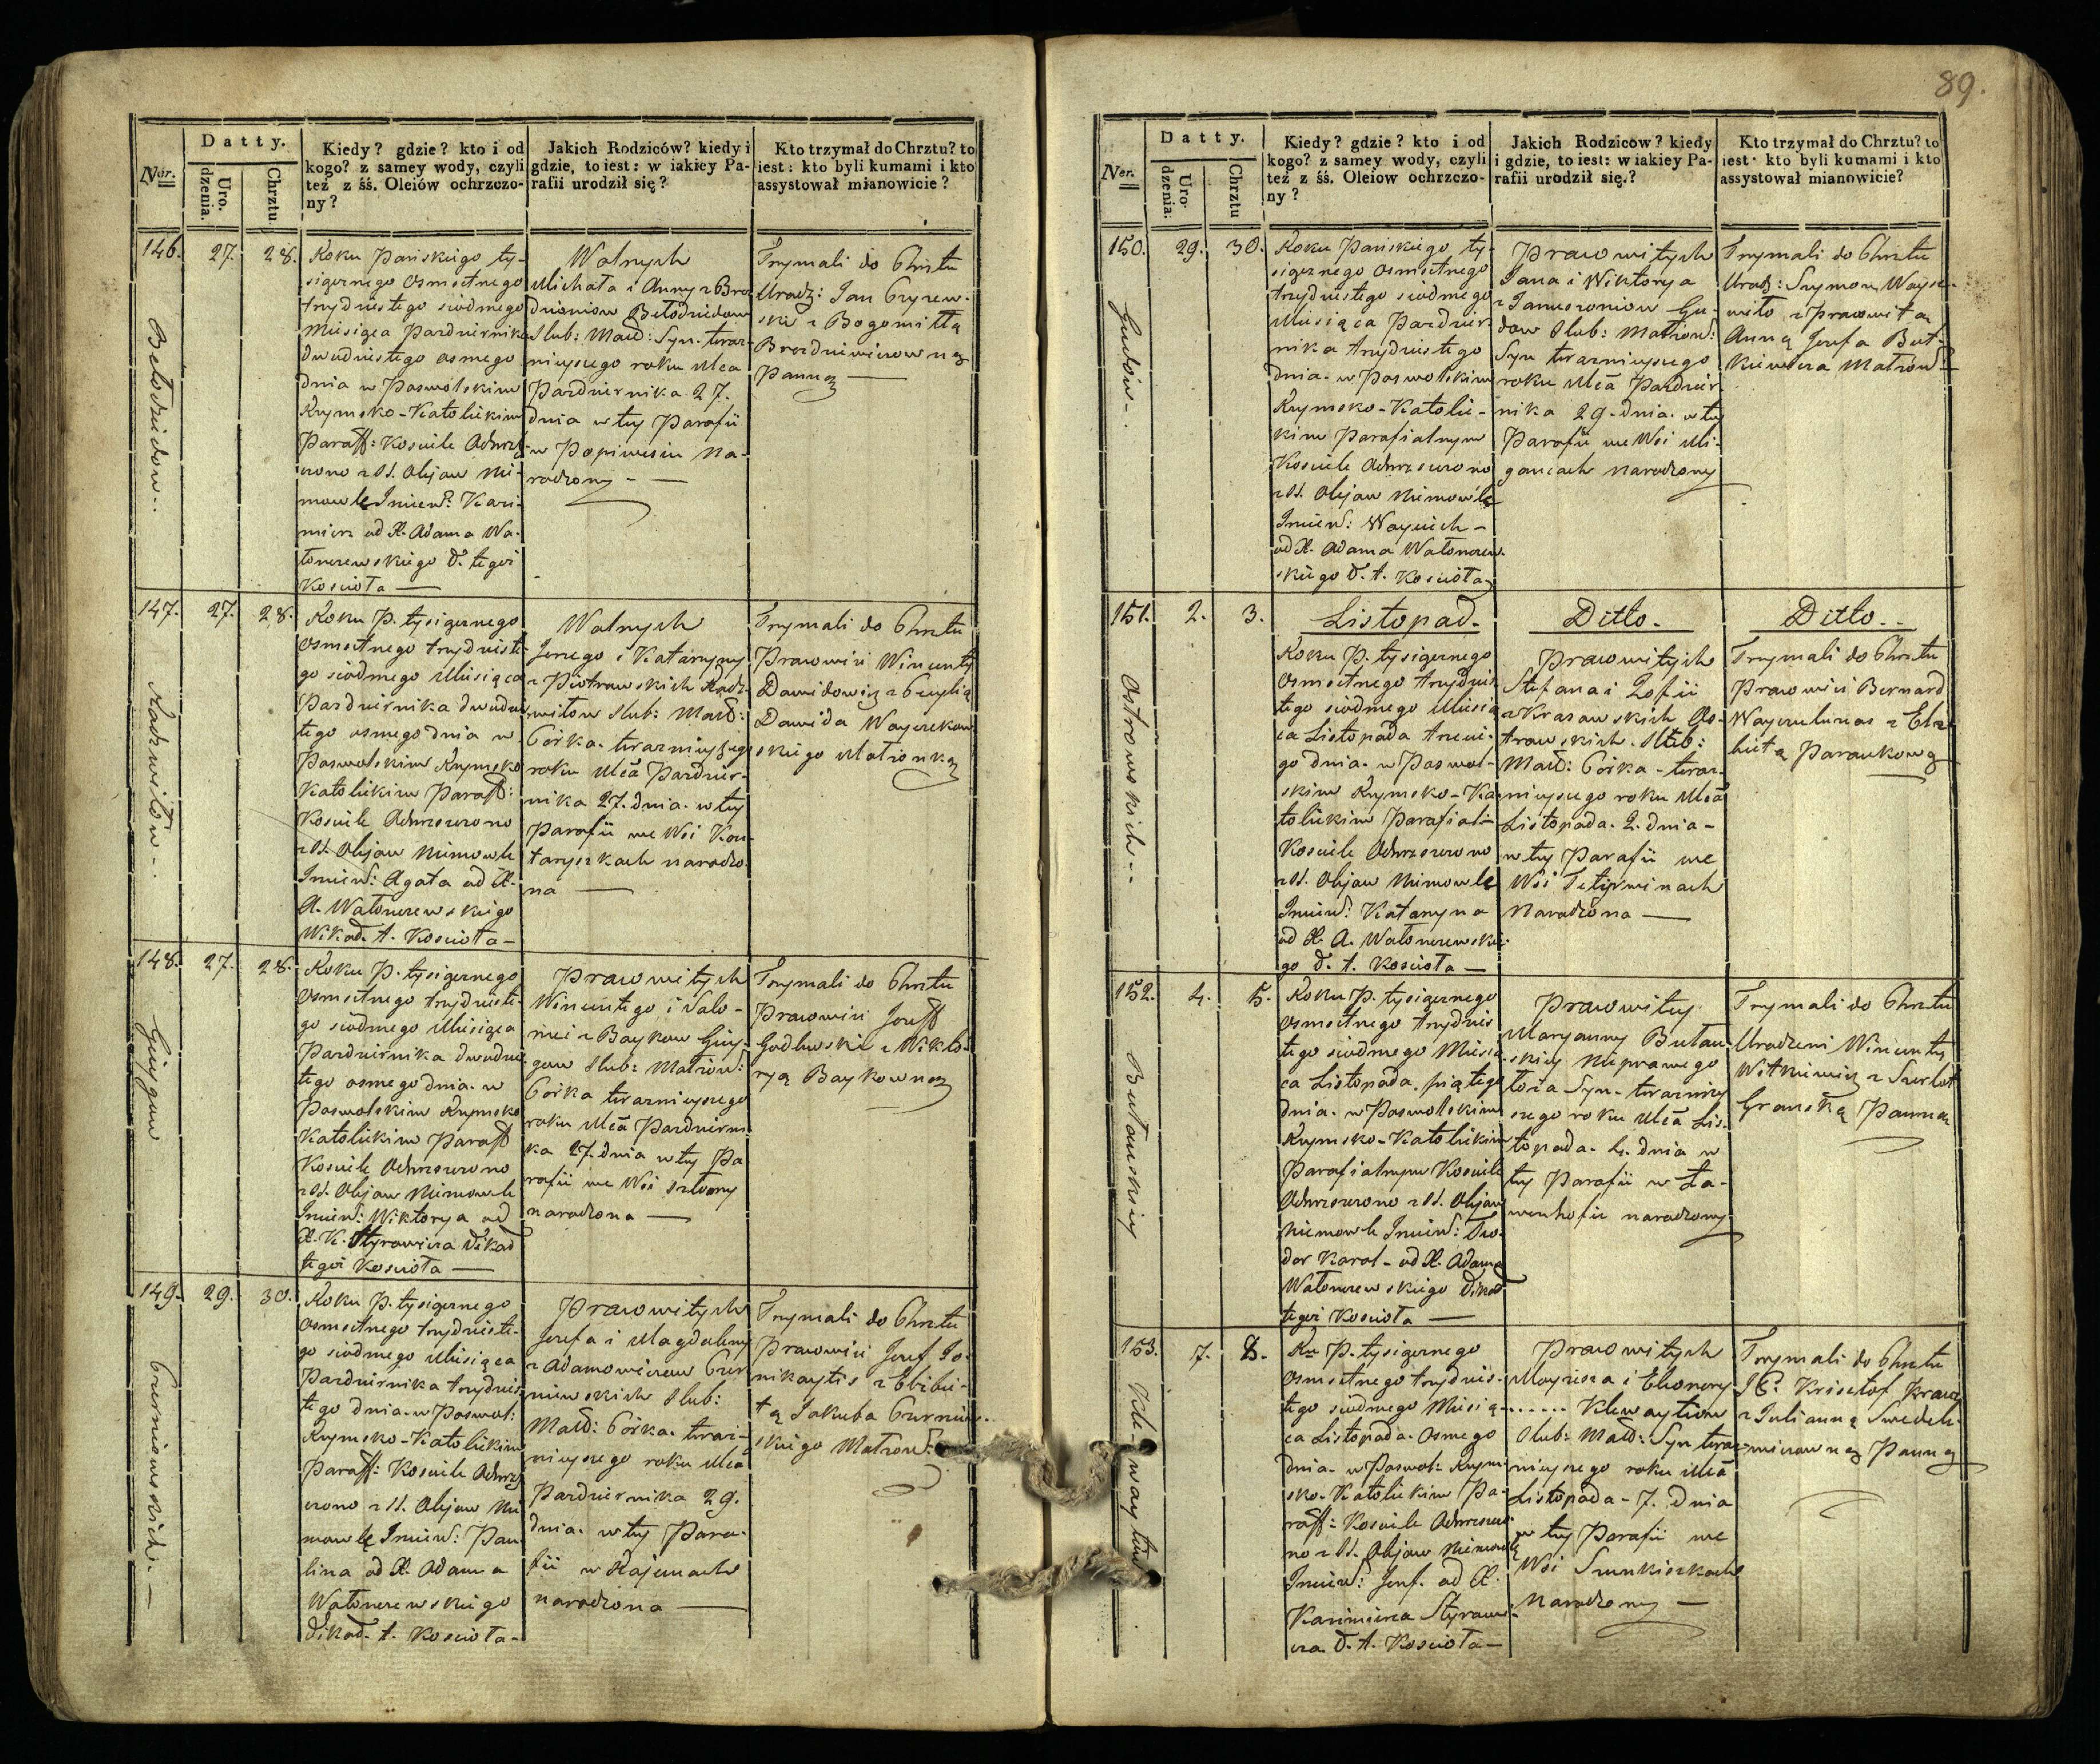 89.
Datty.
Ner.
Uro.
dzenia.
Chrztu
Kiedy? gdzie? kto i od
kogo? z samey wody, czyli
też z śś. Oleiów ochrzczo-
ny?
Jakich Rodziców? kiedy i
gdzie, to iest: w iakiey Pa-
rafii urodził się?
Kto trzymał do Chrztu? to
iest: kto byli kumami i kto
assystował mianowicie?
146.
Bełodziedow.
27.
28.
Roku Pańskiego ty-
sięcznego osmsetnego
trzydziestego siódmego
Miesiąca Pazdziernika
dwudziestego osmego
dnia w Poswolskim
Rzymsko-Katolickim
Paraff: Kosciele Ochrzs
czono z SS. Olejow Nie-
mowlę Imien: Kazi-
mierz od X. Adama Wa-
łonczewskiego W. tegoż
Kościoła
Wolnych
Michała i Anny z Bro
dzioniow Bełodziedow
Slub: Małż: Syn. teraz-
nieyszego roku Mca
Pazdziernika 27.
dnia w tey Parafii
w Popiwesiu na-
rodzony
Trzymali do Chrztu
Urodz: Jan Czyzew-
ski z Bogomiłłą
Panną
147.
Radzwiłow
27.
28.
Roku P. tysięcznego
Osmsetnego trzydzieste-
go siódmego Miesiąca
Pazdziernika dwudzies
tego osmego dnia w
Poswolskim Rzymsko
Katolickim Paraff:
Kosciele Ochrzszczono
z SS. Olejow Niemowle
Imien: Agata od X.
A. Wałonczewskiego
Wikad. t. Kosciola
Wolnych
Jerzego i Katarzyny
z Piotrowskich Radz-
wiłow Slub: Małż:
Córka. terazniejszego
roku Mca Pazdzier-
nika 27. dnia. w tey
Parafii we Wsi Kon-
taryszkach narodzo-
na
Trzymali do Chrztu
Prawowici Wincenty
Dawidowicz z Cecylią
Dawida Wayczekow
skiego Małżonką
148.
27.
28.
Roku P. tysięcznego
Osmsetnego trzydzieste-
go siódmego Miesiąca
Pazdziernika dwudzies
tego osmego dnia. w
Poswolskim Rzymsko
Katolickim Paraff
Kosciele Ochrzszczono
z SS. Olejow Niemowle
Imien: Wiktorya od
X. K. Styrowicza Wikad
tegoż Kościoła
Prawowitych
Wincentego i Salo-
mei z Baykow
Slub: Małżon:
Córka terazniejszego
roku Mca Pazdzierni
ka 27. dnia w tey Pa
rafii we Wsi
narodzona
Trzymali do Chrztu
Prawowici Jozeff
Godlewski z Wikto-
ryą Baykowną
149.
Czerniewskich.
29.
30.
Roku P. tysięcznego
Osmsetnego trzydzieste-
go siódmego Miesiąca
Pazdziernika trzydzies
tego dnia. w Poswol:
Rzymsko-Katolickim
Paraff: Kosciele Ochrzs
czono z SS. Olejow Nie
mowlę Imien: Pau
lina od X. Adama
Wałonczewskiego
Wikad. t. Kosciola
Prawowitych
Jozefa i Magdaleny
z Adamowiczow Czer
niewskich Slub:
Małż: Córka. teraz-
niejszego roku Mca
Pazdziernika 29.
dnia. w tey Para-
fii w Rajunach
narodzona
Trzymali do Chrztu
Prawowici Jozef Jo-
nikaytis z Elzbie-
tą Jakuba Czerniew-
skiego Małżon:
Datty.
Ner.
Uro-
dzenia.
Chrztu
Kiedy? gdzie? kto i od
kogo? z samey wody, czyli
też z śś. Oleiow ochrzczo-
ny?
Jakich Rodziców? kiedy
i gdzie, to iest: w iakiey Pa-
rafii urodził się.?
Kto trzymał do Chrztu? to
iest: kto byli kumami i kto
assystował mianowicie?
150.
Gudów.
29.
30.
Roku Pańskiego ty-
sięcznego Osmsetnego
trzydziestego siódmego
Miesiąca Pazdzier-
nika trzydziestego
dnia. w Poswolskim
Rzymsko-Katolic-
kim Parafialnym
Kosciele Ochrzszczono
z SS. Olejow Niemowlę
Imien: Woyciech
od X. Adama Wałonczew-
skiego W. t. Kosciola
Prawowitych
Jana i Wiktorya
z Januszoniow Gu-
dow Slub: Małżon:
Syn terazniejszego
roku Mca Pazdzier
nika 29. dnia. w tey
Parafii we Wsi Mi-
goncach narodzony
Trzymali do Chrztu
Urodz: Szymon
z Prawowitą
Anną Jozefa But-
kiewicza Małżon:
151.
Ostrowskich
2.
3.
Listopad.
Roku P. tysięcznego
Osmsetnego trzydzies
tego siódmego Miesią
ca Listopada trzecie-
go dnia. w Poswol-
skim Rzymsko-Ka
tolickim Parafial-
Kosciele Ochrzszczono
z SS. Olejow Niemowlę
Imien: Katarzyna
od X. A. Wałonczewskie-
go W. t. Kosciola
Ditto.
Prawowitych
Stefana i Zofii
z Krasowskich Os-
trowskich. Slub:
Małż: Córka - teraz-
niejszego roku Mca
Listopada. 2. dnia
w tey Parafii we
Wsi Tetirwinach
Narodzona
Ditto.
Trzymali do Chrztu
Prawowici Bernard
z Elz-
bietą Paraukową
152.
Butowskiey
4.
5.
Roku P. tysięcznego
Osmsetnego trzydzies
tego siódmego Miesią
ca Listopada. piątego
dnia. w Poswolskim
Rzymsko-Katolickim
Parafialnym Kosciele
Ochrzszczono z SS. Olejow
Niemowle Imien: Teo-
dor Karol. od X. Adama
Wałonczewskiego Wikad
tegoż Kościoła
Prawowitey
Maryanny Butow
skiey nieprawego
łoża Syn. terazniey
szego roku Mca Lis-
topada. 4. dnia w
tey Parafii w Ła-
wenhofie narodzony
Trzymali do Chrztu
Urodzeni Wincenty
Witkiewicz z Szarlot
Panną
153.
Klewaytow
7.
8.
Ru P. tysięcznego
Osmsetnego trzydzies-
tego siódmego Miesią-
ca Listopada. Osmego
dnia. w Poswol: Rzym-
sko-Katolickim Pa-
raff: Kosciele Ochrzszczo-
no z SS. Olejow Niemowlę
Imien: Jozef. od X.
Kazimierza Styrowi-
cza. W. t. Kosciola
Prawowitych
Moyzesza i Eleonory
...... Klewaytiow
Slub: Małż: Syn teraz-
niejszego roku Mca
Listopada - 7. dnia
w tey Parafii we
Wsi Szunkiszkach
Narodzony
Trzymali do Chrztu
Krisztof
z Julianną
Panną